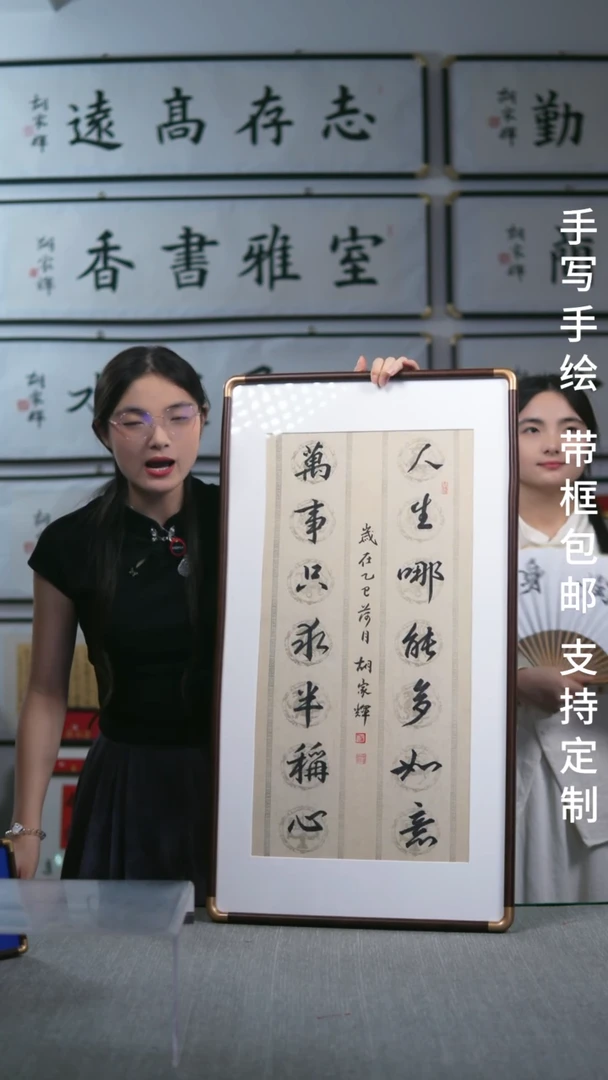 遠高存志
胡家輝
勤
胡家輝
香書雅室
胡家輝
胡家輝
人生哪能多如意
萬事只求半稱心
歲在乙巳荷月 胡家輝
手写手绘 带框包邮 支持定制